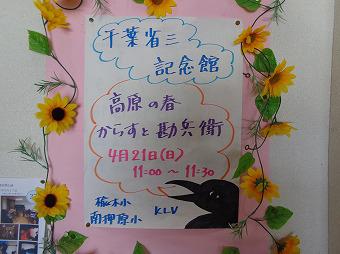 千葉省三
記念館
高原の春
からすと勘兵衛
4月21日(日)
11:00～11:30
楡木小
南押原小
KLV